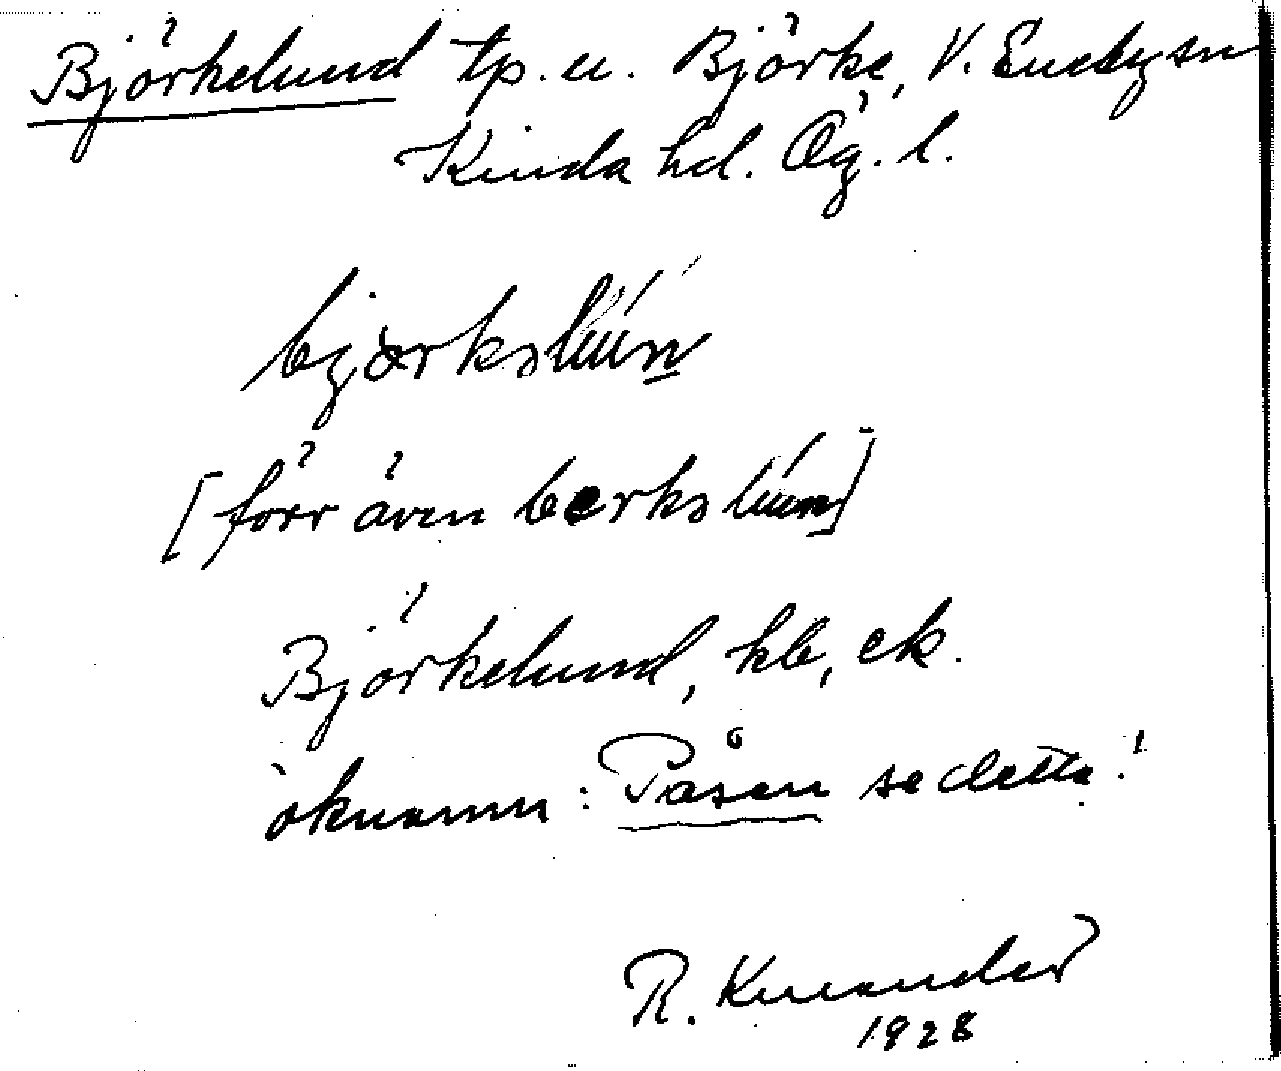 Björkelund tp. u. Björke, V. Eneby sn
Kinda hd. Ög. l.
[förr även
Björkelund, kb, ek.
öknamn: Påsen se detta!
R. Knuander
1928